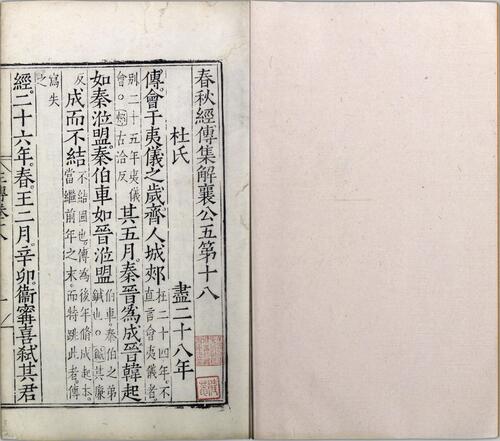 春秋經傳集解襄公五第十八
杜氏 盡二十八年
傳會于夷儀之歲齊人城郟在二十四年不直言會夷儀者
別二十五年夷儀會○郟古洽反其五月秦晉爲成晉韓起
如秦涖盟秦伯車如晉涖盟伯車秦伯之弟鍼也○鍼其廉
反成而不結不結固也傳為後年脩成起本當繼前年之末而特跳此者傳
寫失之
經二十六年春王二月辛卯衞甯喜弒其君